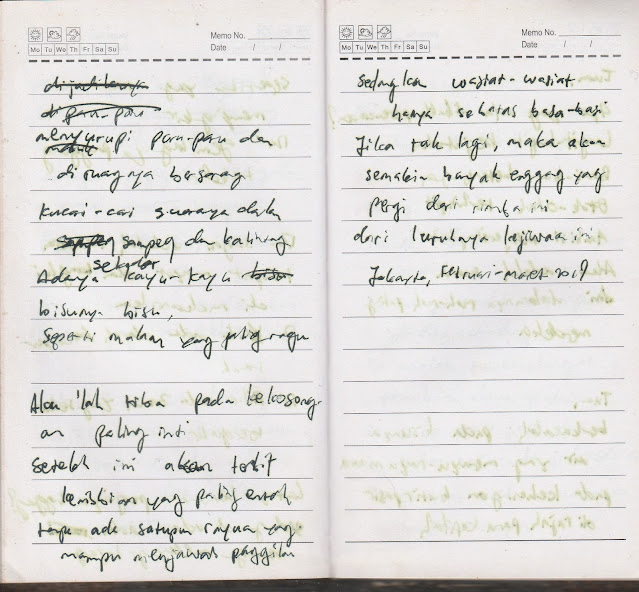 Memo No.
Date / /
Mo Tu We Th Fr Sa Su
dijadikannya
di paru-paru
menyurupi paru-paru dan
di ruangnya bersarang
kucari-cari suaranya dalam
sampeq dan kalining
sekedar
Adanya kayu-kayu bisu
bisunya bisu,
seperti makan yang paling ragu
Aku 'lah tiba pada kekosong-
an paling inti
setelah ini akan terbit
kemiskinan yang paling entah
tanpa ada satupun rayuan yang
mampu menjawab panggilan
Memo No.
Date / /
Mo Tu We Th Fr Sa Su
sedangkan wasiat-wasiat
hanya sebatas basa-basi
Jika tak lagi, maka akan
semakin banyak enggang yang
pergi dari rimba ini
dari luruhnya kejiwaan ini
Jakarta, Februari-Maret 2019